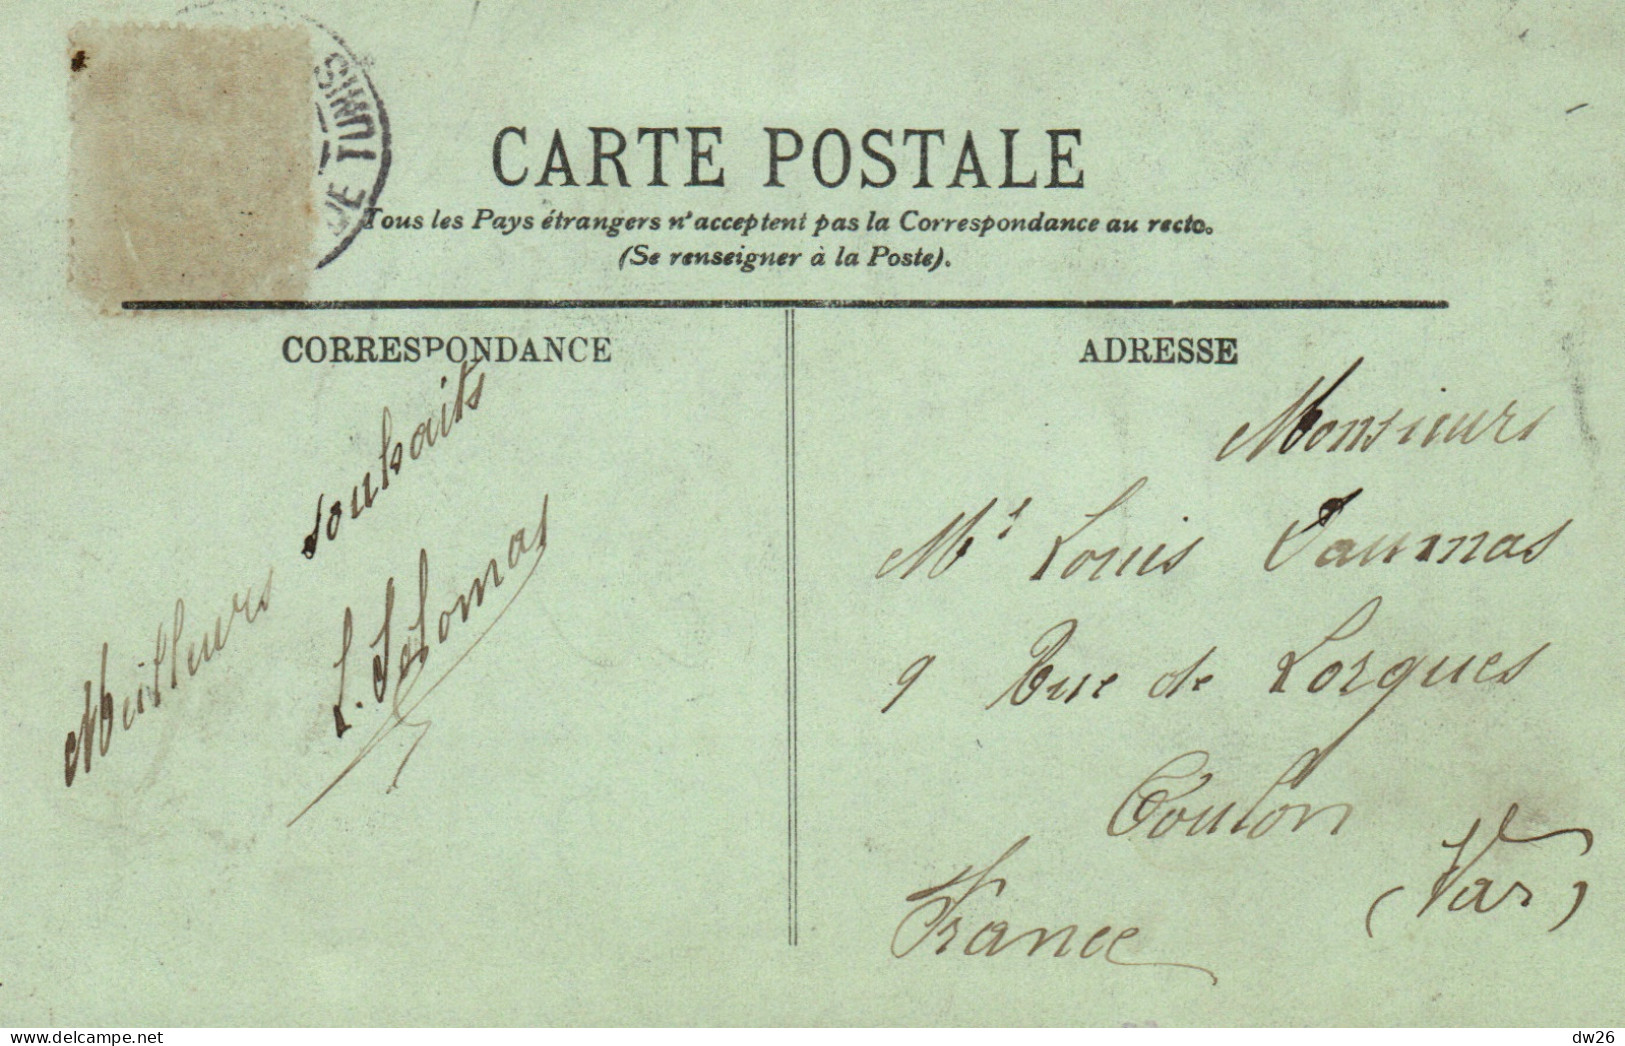 TUNIS
CARTE POSTALE
Tous les Pays étrangers n'acceptent pas la Correspondance au recto.
(Se renseigner à la Poste).
CORRESPONDANCE
Meilleurs souhaits
ADRESSE
Monsieur
Louis Daumas
9 Rue de Lorgues
Toulon
(Var)
France
dw26